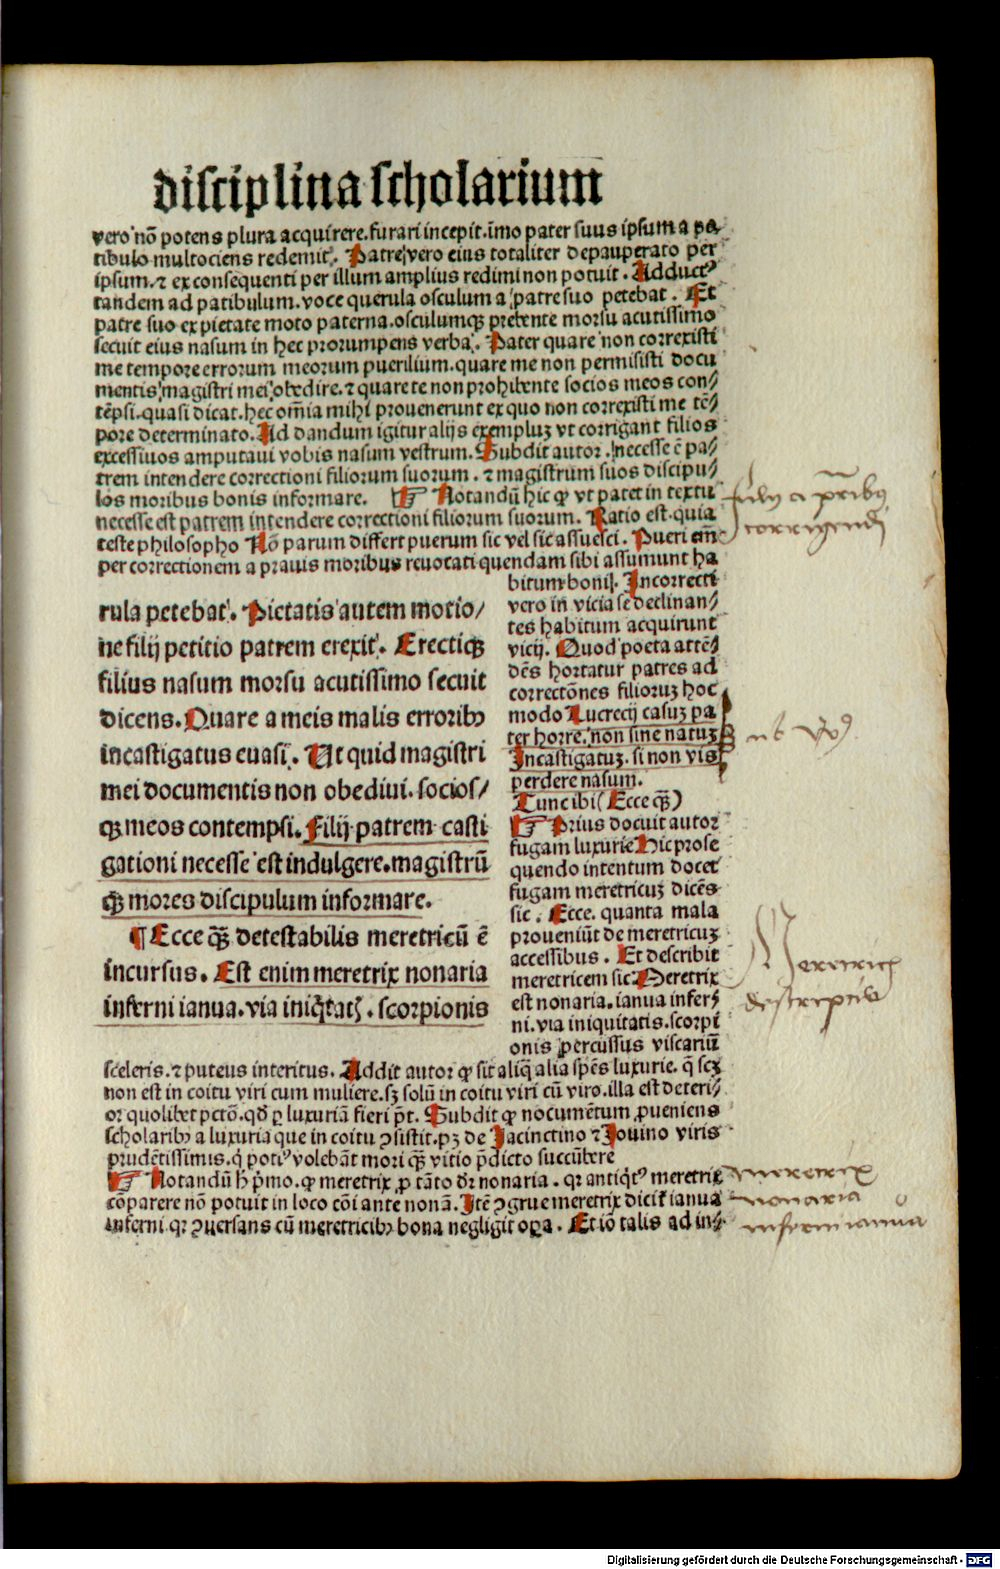 disciplina scholarium
vero nō potens plura acquirere. furari incepit. imo pater suus ipsum a pa-
tibulo multociens redemit. Patre vero eius totaliter depauperato per
ipsum. ⁊ ex consequenti per illum amplius redimi non potuit. Aductꝰ
tandem ad patibulum. voce querula osculum a patre suo petebat. Et
patre suo ex pietate moto paterna. osculumqꝫ prebente morsu acutissimo
secuit eius nasum in hec prorumpens verba. Pater quare non correxisti
me tempore errorum meorum puerilium. quare me non permisisti docu
mentis magistri mei obedire. ⁊ quare te non prohibente socios meos con⸗
tēpsi. quasi dicat. hec om̄ia mihi prouenerunt ex quo non correxisti me tē⸗
pore determinato. Ad dandum igitur alijs exempluꝫ vt corrigant filios
excessiuos amputaui vobis nasum vestrum. Subdit autor. necesse ē pa⸗
trem intendere correctioni filiorum suorum. ⁊ magistrum suos discipu⸗
los moribus bonis informare. ☞ Notandū hic ꝙ vt patet in textu
necesse est patrem intendere correctioni filiorum suorum. Ratio est. quia
teste philosopho Nō parum differt puerum sic vel sic assuesci. Pueri em̄
per correctionem a prauis moribus reuocati quendam sibi assumunt ha
bitum boni. Incorrecti
vero in vicia se declinan⸗
tes habitum acquirunt
vicij. Quod poeta attē⸗
dēs hortatur patres ad
correctōnes filioruꝫ hoc
modo Lucrecij casuꝫ pa
ter horre. non sine natuꝫ
Incastigatuꝫ. si non vis
perdere nasum.
Tunc ibi (Ecce qꝫ̄)
☞ Prius docuit autor
fugam luxurie Hic prose
quendo intentum docet
fugam meretricuꝫ dicēs
sic. Ecce. quanta mala
proueniūt de meretricuꝫ
accessibus. Et describit
meretricem sic. Meretrix
est nonaria. ianua infer⸗
ni. via iniquitatis. scorpi
onis ꝑcussus viscariū
rula petebat. Pietatis autem motio⸗
ne filij petitio patrem erexit. Erectiqꝫ
filius nasum morsu acutissimo secuit
dicens. Quare a meis malis erroribꝰ
incastigatus euasi. Ut quid magistri
mei documentis non obediui. socios⸗
qꝫ meos contempsi. Filij patrem casti
gationi necesse est indulgere. magistrū
qꝫ mores discipulum informare.
¶ Ecce qꝫ̄ detestabilis meretricū ē
incursus. Est enim meretrix nonaria
inferni ianua. via iniq̄tatꝭ. scorpionis
sceleris. ⁊ puteus interitus. Addit autor ꝙ sit aliq̄ alia spēs luxurie. q̄ scꝫ
non est in coitu viri cum muliere. sꝫ solū in coitu viri cū viro. illa est deteri⸗
or quolibet pctō. qd̄ ꝑ luxuriā fieri pt̄. Subdit ꝙ nocumētum ꝓueniens
scholaribꝰ a luxuria que in coitu ꝯsistit. pꝫ de Jacinctino ⁊ Jouino viris
prudētissimis. q̇ potiꝰ volebāt mori qꝫ̄ vitio p̄dicto succūbere
☞ Notandū h̄ p̄mo. ꝙ meretrix ꝓ tāto dr̄ nonaria. qr antiq̇tꝰ meretrix
cōparere nō potuit in loco cōi ante nonā. Itē ꝯgrue meretrix dicit̄ ianua
inferni. qr ꝯuersans cū meretricibꝰ bona negligit oꝑa. Et iō talis ad in⸗
filij a pr̄ibꝫ
corrigendi
Meretricis
descriptio
meretrix
nonaria
inferni ianua
Digitalisierung gefördert durch die Deutsche Forschungsgemeinschaft - DFG